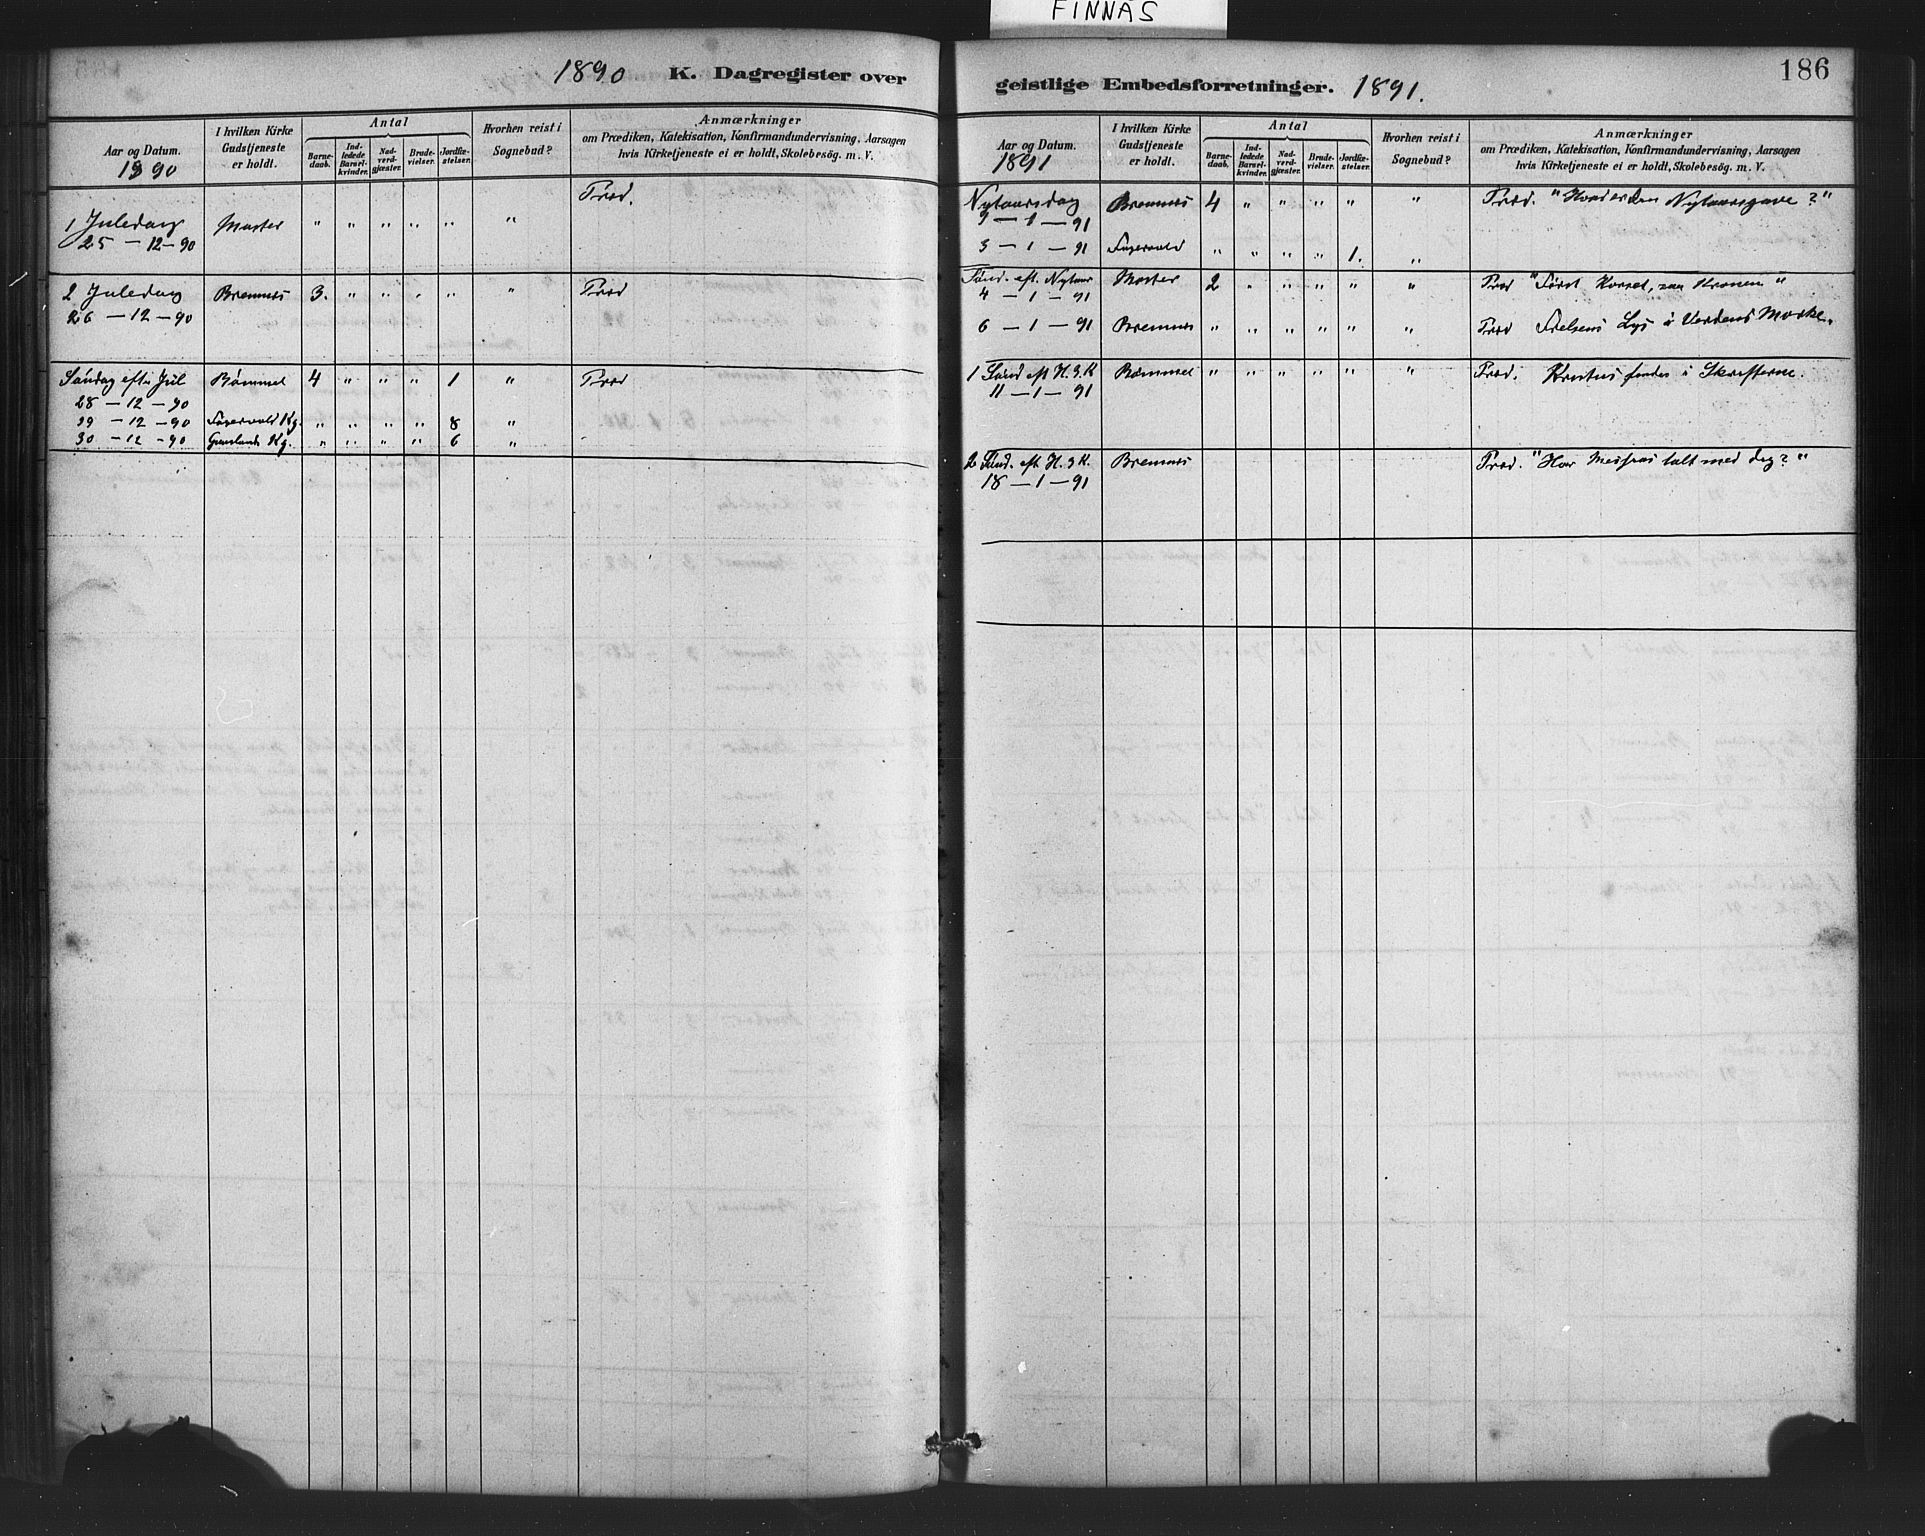 FINNÅS
1890 K. Dagregister over
Aar og Datum.
1890
I hvilken Kirke Gudstjeneste er holdt.
Antal
Barne-daab.
Ind-ledede Barsel-kvinder.
Nad-verd-gjæster.
Brude-vielser.
Jordfæ-stelser.
Hvorhen reist i Sognebud?
Anmærkninger
om Prædiken, Katekisation, Konfirmandundervisning, Aarsagen
hvis Kirketjeneste ei er holdt, Skolebesøg. m. V.
Præd.
1 Juledag Moster " " " " " "
25 - 12 - 90
2 Juledag Bremnes 3. " " " " " Præd
26 - 12 - 90
Søndag efter Jul Bømmel 4 " " " 1 " Præd
28 - 12 - 90
29 - 12 - 90 Kg. " " " " 8 "
30 - 12 - 90 Kg. " " " " 6 "
186
geistlige Embedsforretninger. 1891.
Aar og Datum.
1891
I hvilken Kirke Gudstjeneste er holdt.
Antal
Barne-daab.
Ind-ledede Barsel-kvinder.
Nad-verd-gjæster.
Brude-vielser.
Jordfæ-stelser.
Hvorhen reist i Sognebud?
Anmærkninger
om Prædiken, Katekisation, Konfirmandundervisning, Aarsagen
hvis Kirketjeneste ei er holdt, Skolebesøg. m. V.
Nytaarsdag Bremnes 4 " " " " " Præd. "Hvad er den Nytaarsgave?"
1 - 91
3 - 1 - 91 " " " " 1. "
Sønd. eft. Nytaar Moster 2 " " " " " Præd "Først Korset, saa Kronen"
4 - 1 - 91
6 - 1 - 91 Bremnes " " " " " " Præd Frelsens Lys i Verdens Mørke.
1 Sønd eft H. 3 K Bømmel " " " " " " Præd. Kristus findes i Skrifterne.
11 - 1 - 91
2 Sønd. eft H. 3 K. Bremnes Præd. "Har Messias talt med dig?"
18 - 1 - 91